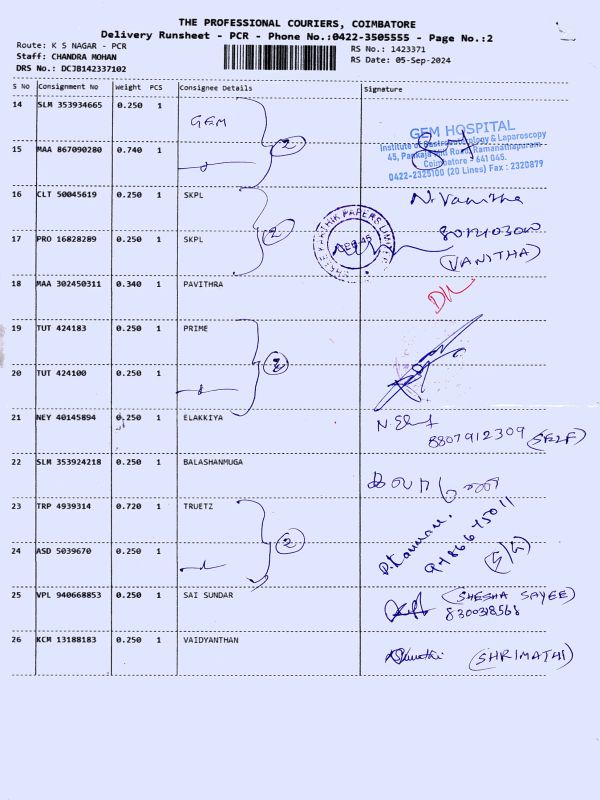 THE PROFESSIONAL COURIERS, COIMBATORE
Delivery Runsheet - PCR - Phone No.:0422-3505555 - Page No.:2
Route: K S NAGAR - PCR
Staff: CHANDRA MOHAN
DRS No.: DCJB142337102
RS No.: 1423371
RS Date: 05-Sep-2024
S No Consignment No Weight PCS Consignee Details Signature
14 SLM 353934665 0.250 1 GEM
2
GEM HOSPITAL
Institute of Gastroenterology & Laparoscopy
45, Pankaja Mill Road, Ramanathapuram
Coimbatore - 641 045.
0422-2325100 (20 Lines) Fax : 2320879
15 MAA 867090280 0.740 1
16 CLT 50045619 0.250 1 SKPL N. Vanitha
2
17 PRO 16828289 0.250 1 SKPL
(VANITHA)
18 MAA 302450311 0.340 1 PAVITHRA
19 TUT 424183 0.250 1 PRIME
2
20 TUT 424100 0.250 1
21 NEY 40145894 0.250 1 ELAKKIYA
8807912309 (SELF)
22 SLM 353924218 0.250 1 BALASHANMUGA
23 TRP 4939314 0.720 1 TRUETZ
2
24 ASD 5039670 0.250 1
25 VPL 940668853 0.250 1 SAI SUNDAR (SHESHA SAYEE)
8300318568
26 KCM 13188183 0.250 1 VAIDYANTHAN (SHRIMATHI)